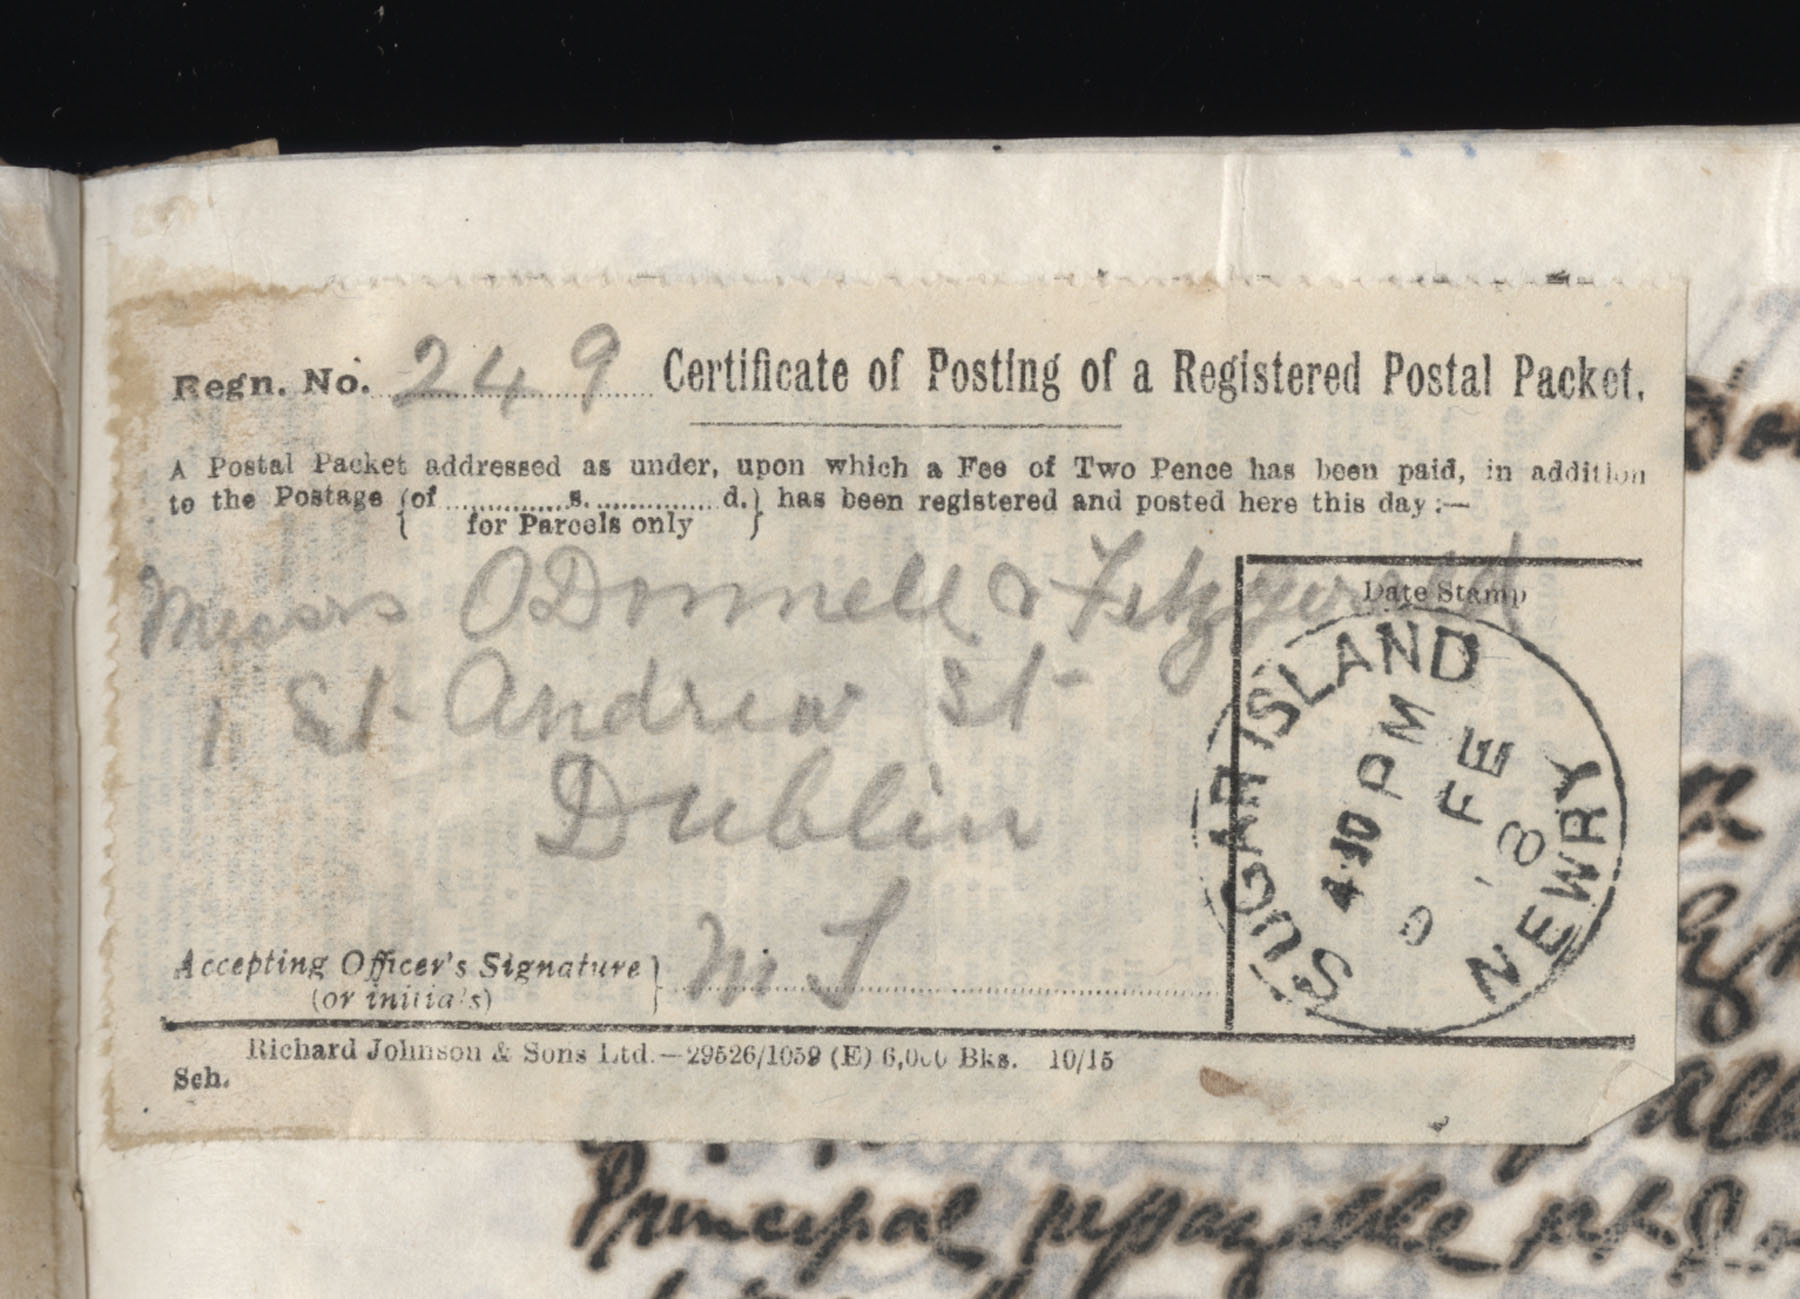 Regn. No. 249 Certificate of Posting of a Registered Postal Packet.
A Postal Packet addressed as under, upon which a Fee of Two Pence has been paid, in addition
to the Postage {of ............s. ............ d.} has been registered and posted here this day:—
for Parcels only
Messrs ODonnell & Fitzgerald
1 St. Andrew St
Dublin
Date Stamp
SUGAR ISLAND
4.10 PM
FE
8
NEWRY
Accepting Officer's Signature
(or initials)
Richard Johnson & Sons Ltd.—29526/1059 (E) 6,000 Bks. 10/15
Sch.
Principal repayable